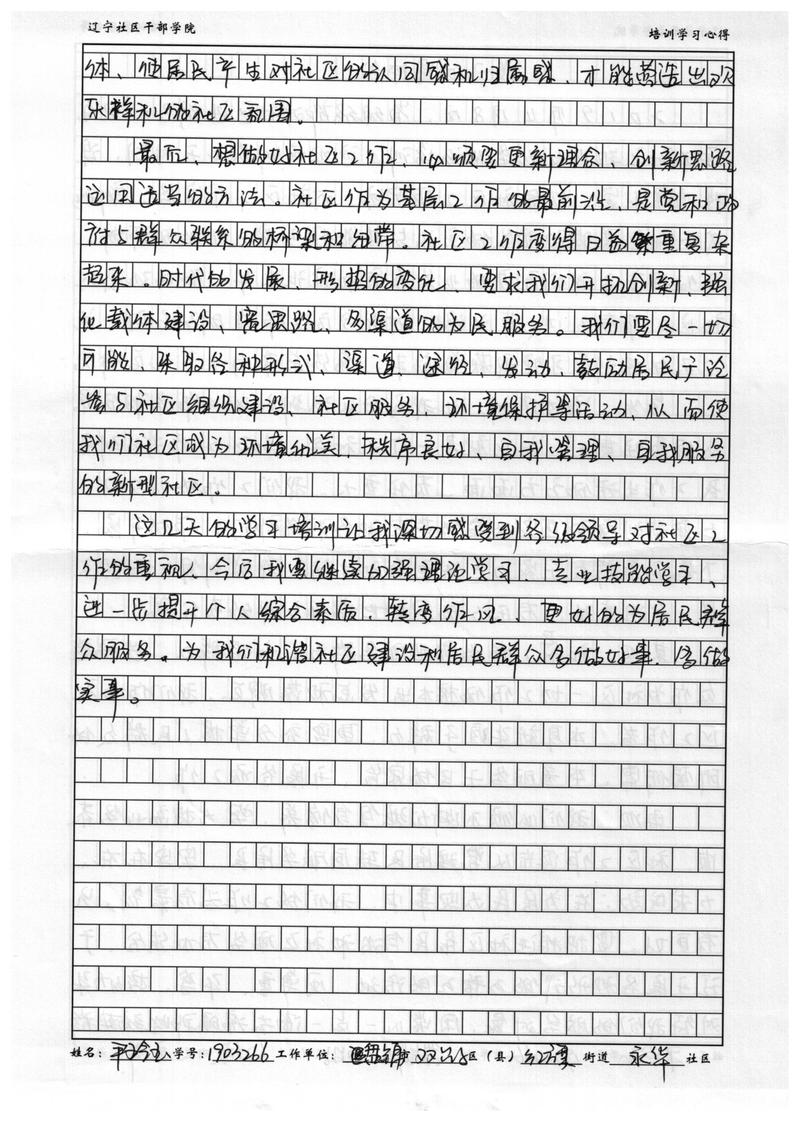 辽宁社区干部学院
培训学习心得
体、使居民产生对社区的认同感和归属感、才能营造出欢
乐祥和的社区氛围。
最后、想做好社区工作、必须要更新理念、创新思路
运用适当的方法。社区作为基层工作的最前沿、是党和政
府与群众联系的桥梁和纽带、社区工作变得日益繁重复杂
起来。时代的发展、形势的变化、要求我们开拓创新、强
化载体建设、宽思路、多渠道的为民服务。我们要尽一切
可能、采取各种形式、渠道、途径、发动、鼓励居民于论
参与社区组织建设、社区服务、环境保护等活动、从而使
我们社区成为环境优美、秩序良好、自我管理、自我服务
的新型社区。
这几天的学习培训让我深切感受到各级领导对社区工
作的重视、今后我要继续加强理论学习、专业技能学习、
进一步提升个人综合素质、转变作风、更好的为居民群
众服务。为我们和谐社区建设和居民群众多做好事、多做
实事。
姓名: 学号:1903266 工作单位: 区(县) 街道 永华 社区